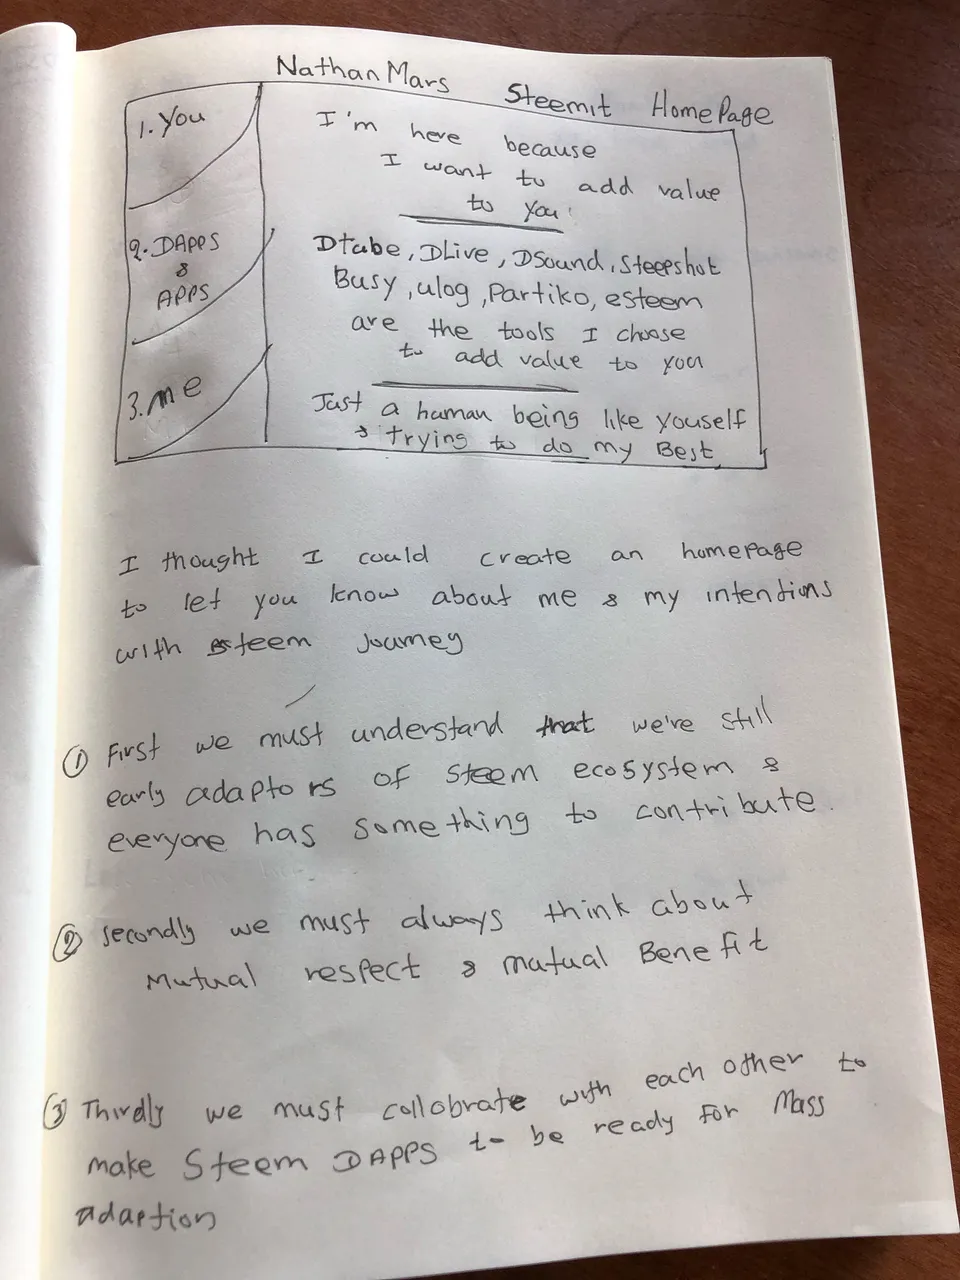 NathanMars Steemit HomePage
1. You
I'm here because
I want to add value
to you
2. DAPPS
&
APPS
Dtube, DLive, DSound, Steepshot
Busy, ulog, Partiko, esteem
are the tools I choose
to add value to you
3. me
Just a human being like youself
& trying to do my Best
I thought I could create an homepage
to let you know about me & my intentions
with steem Journey
① First we must understand that we're still
early adaptors of steem ecosystem &
everyone has something to contribute.
② Secondly we must always think about
Mutual respect & mutual Benefit
③ Thirdly we must collobrate with each other to
make Steem DAPPS to be ready for Mass
adaption